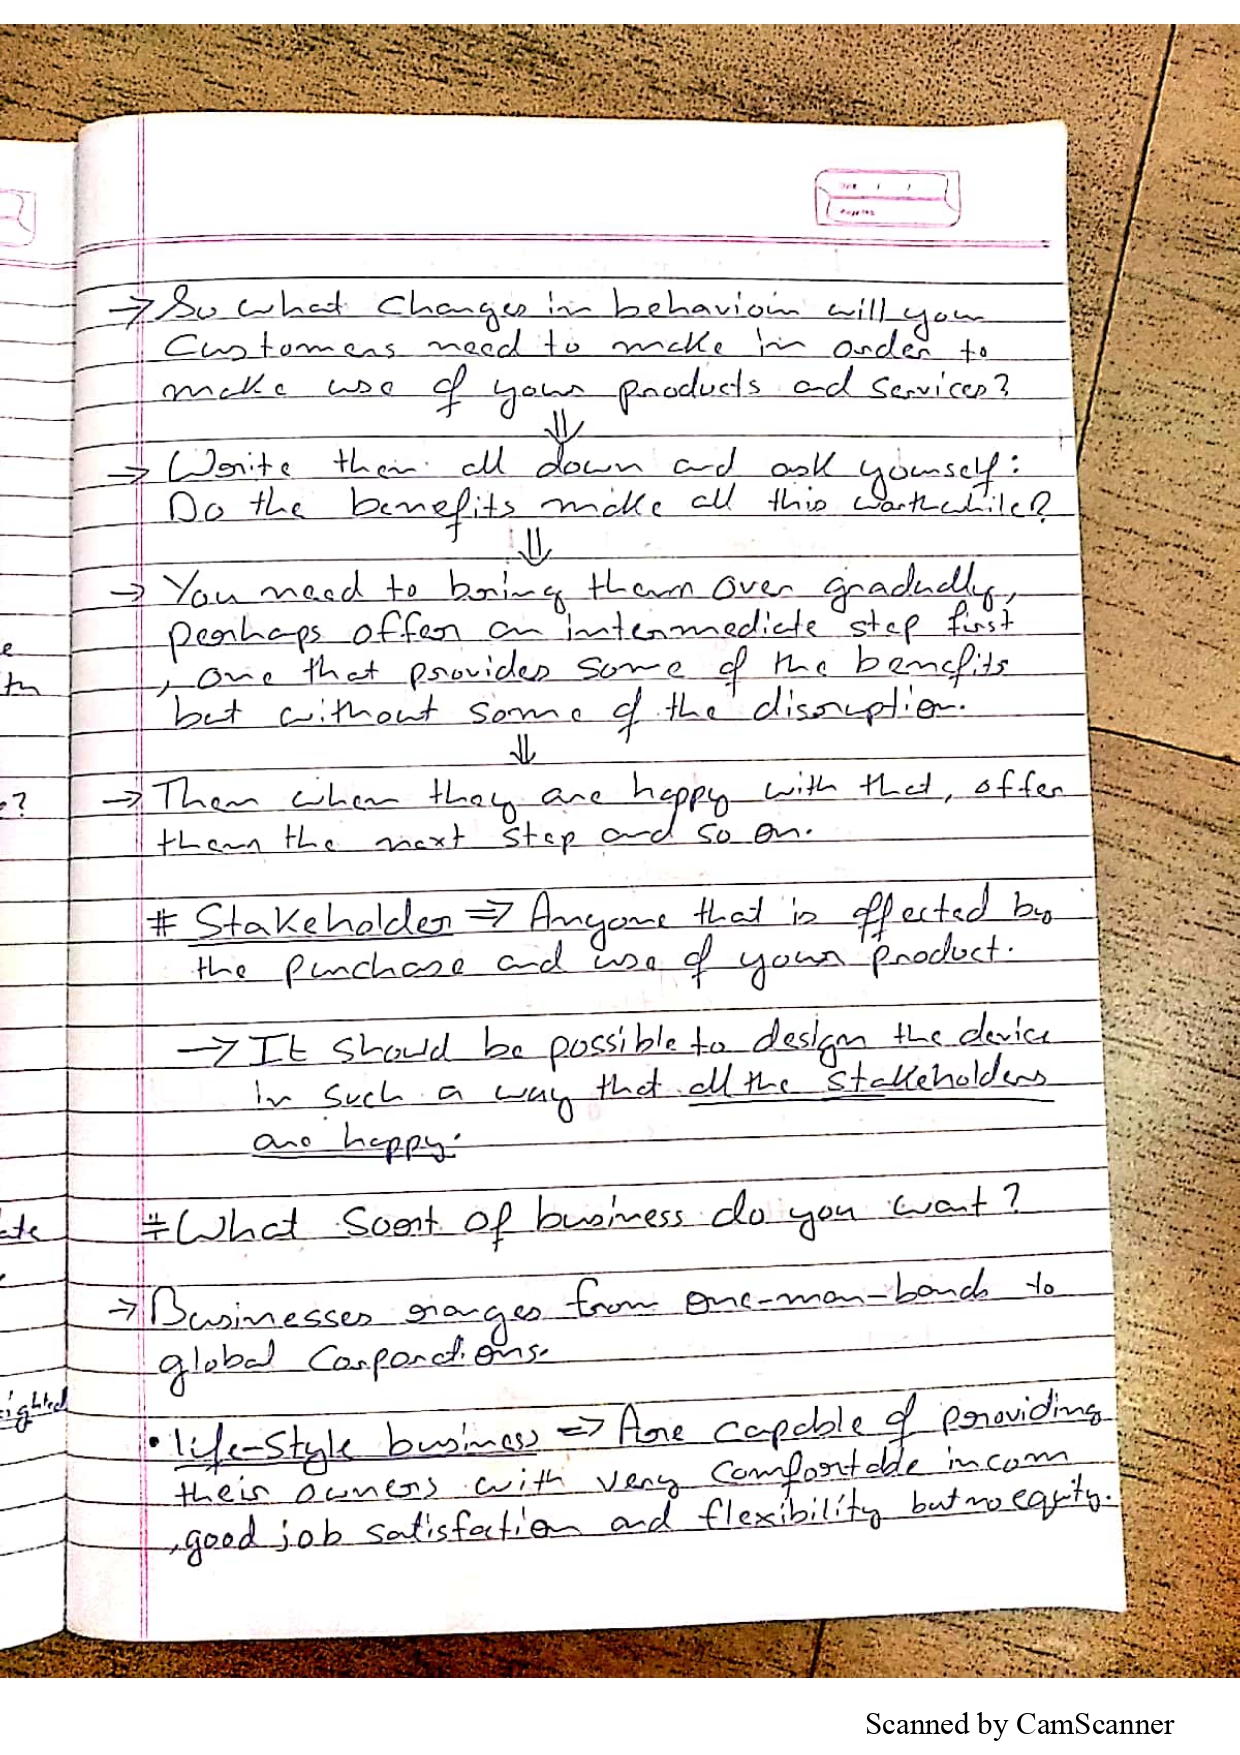 → So what changes in behaviour will your
Customers need to make in order to
make use of your products and services?
⇓
→ Write them all down and ask yourself:
Do the benefits make all this worthwhile?
⇓
→ You need to bring them over gradually,
perhaps offer an intermediate step first
, one that provides some of the benefits
but without some of the disruption.
⇓
→ Then when they are happy with that, offer
them the next step and so on.
# Stakeholder ⇒ Anyone that is effected by
the purchase and use of your product.
→ It should be possible to design the device
in such a way that all the stakeholders
are happy.
# What Sort of business do you want?
→ Businesses ranges from one-man-bands to
global Corporations.
• life-Style business ⇒ Are capable of providing
their owners with very comfortable incom
, good job satisfaction and flexibility but no equity.
e
th
?
ate
sighted
Scanned by CamScanner